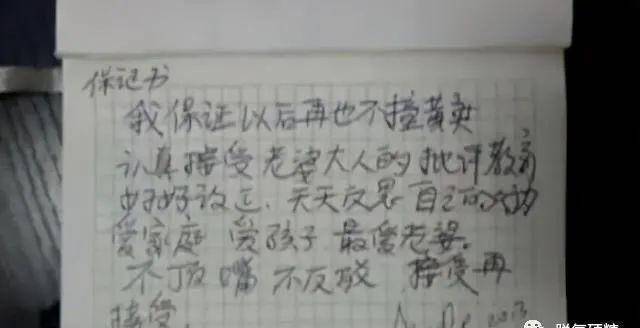 保记书
我保证以后再也不撞黄灾
认真接受老婆大人的批评教育
好好改正、天天反思自己的
爱家庭 爱孩子 最爱老婆。
不顶嘴 不反驳 接受再
接受.